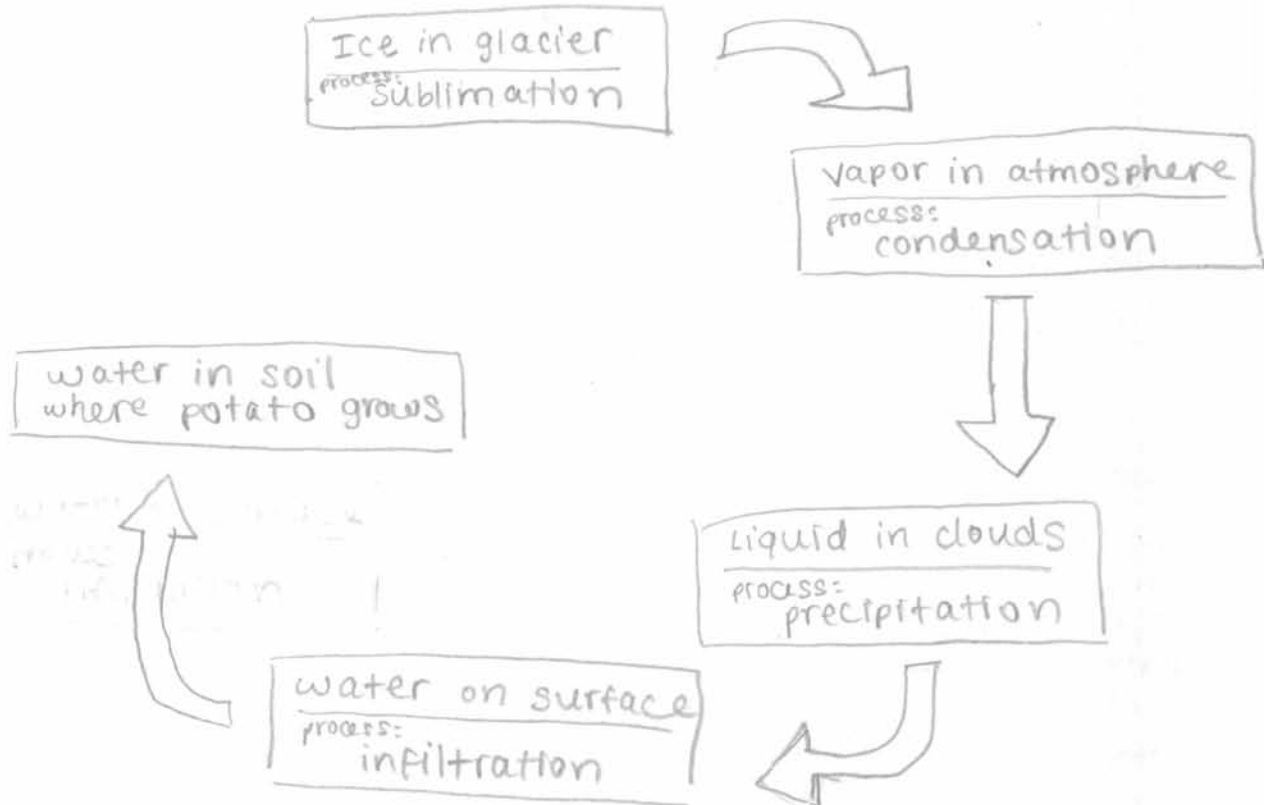 Ice in glacier
process:
sublimation
vapor in atmosphere
process:
condensation
Liquid in clouds
process:
precipitation
water on surface
process:
infiltration
water in soil
where potato grows